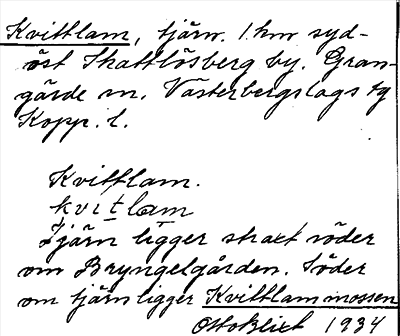 Kvittlam, tjärn. 1. km syd-
öst Skattlösberg by. Gran-
gärde sn. Västerbergslags tg
Kopp. l.
Kvittlam.
kvıt̲lam
Tjärn ligger strax söder
om Bryngelgården. Söder
om tjärn ligger Kvittlammossen
Otto Blixt 1934